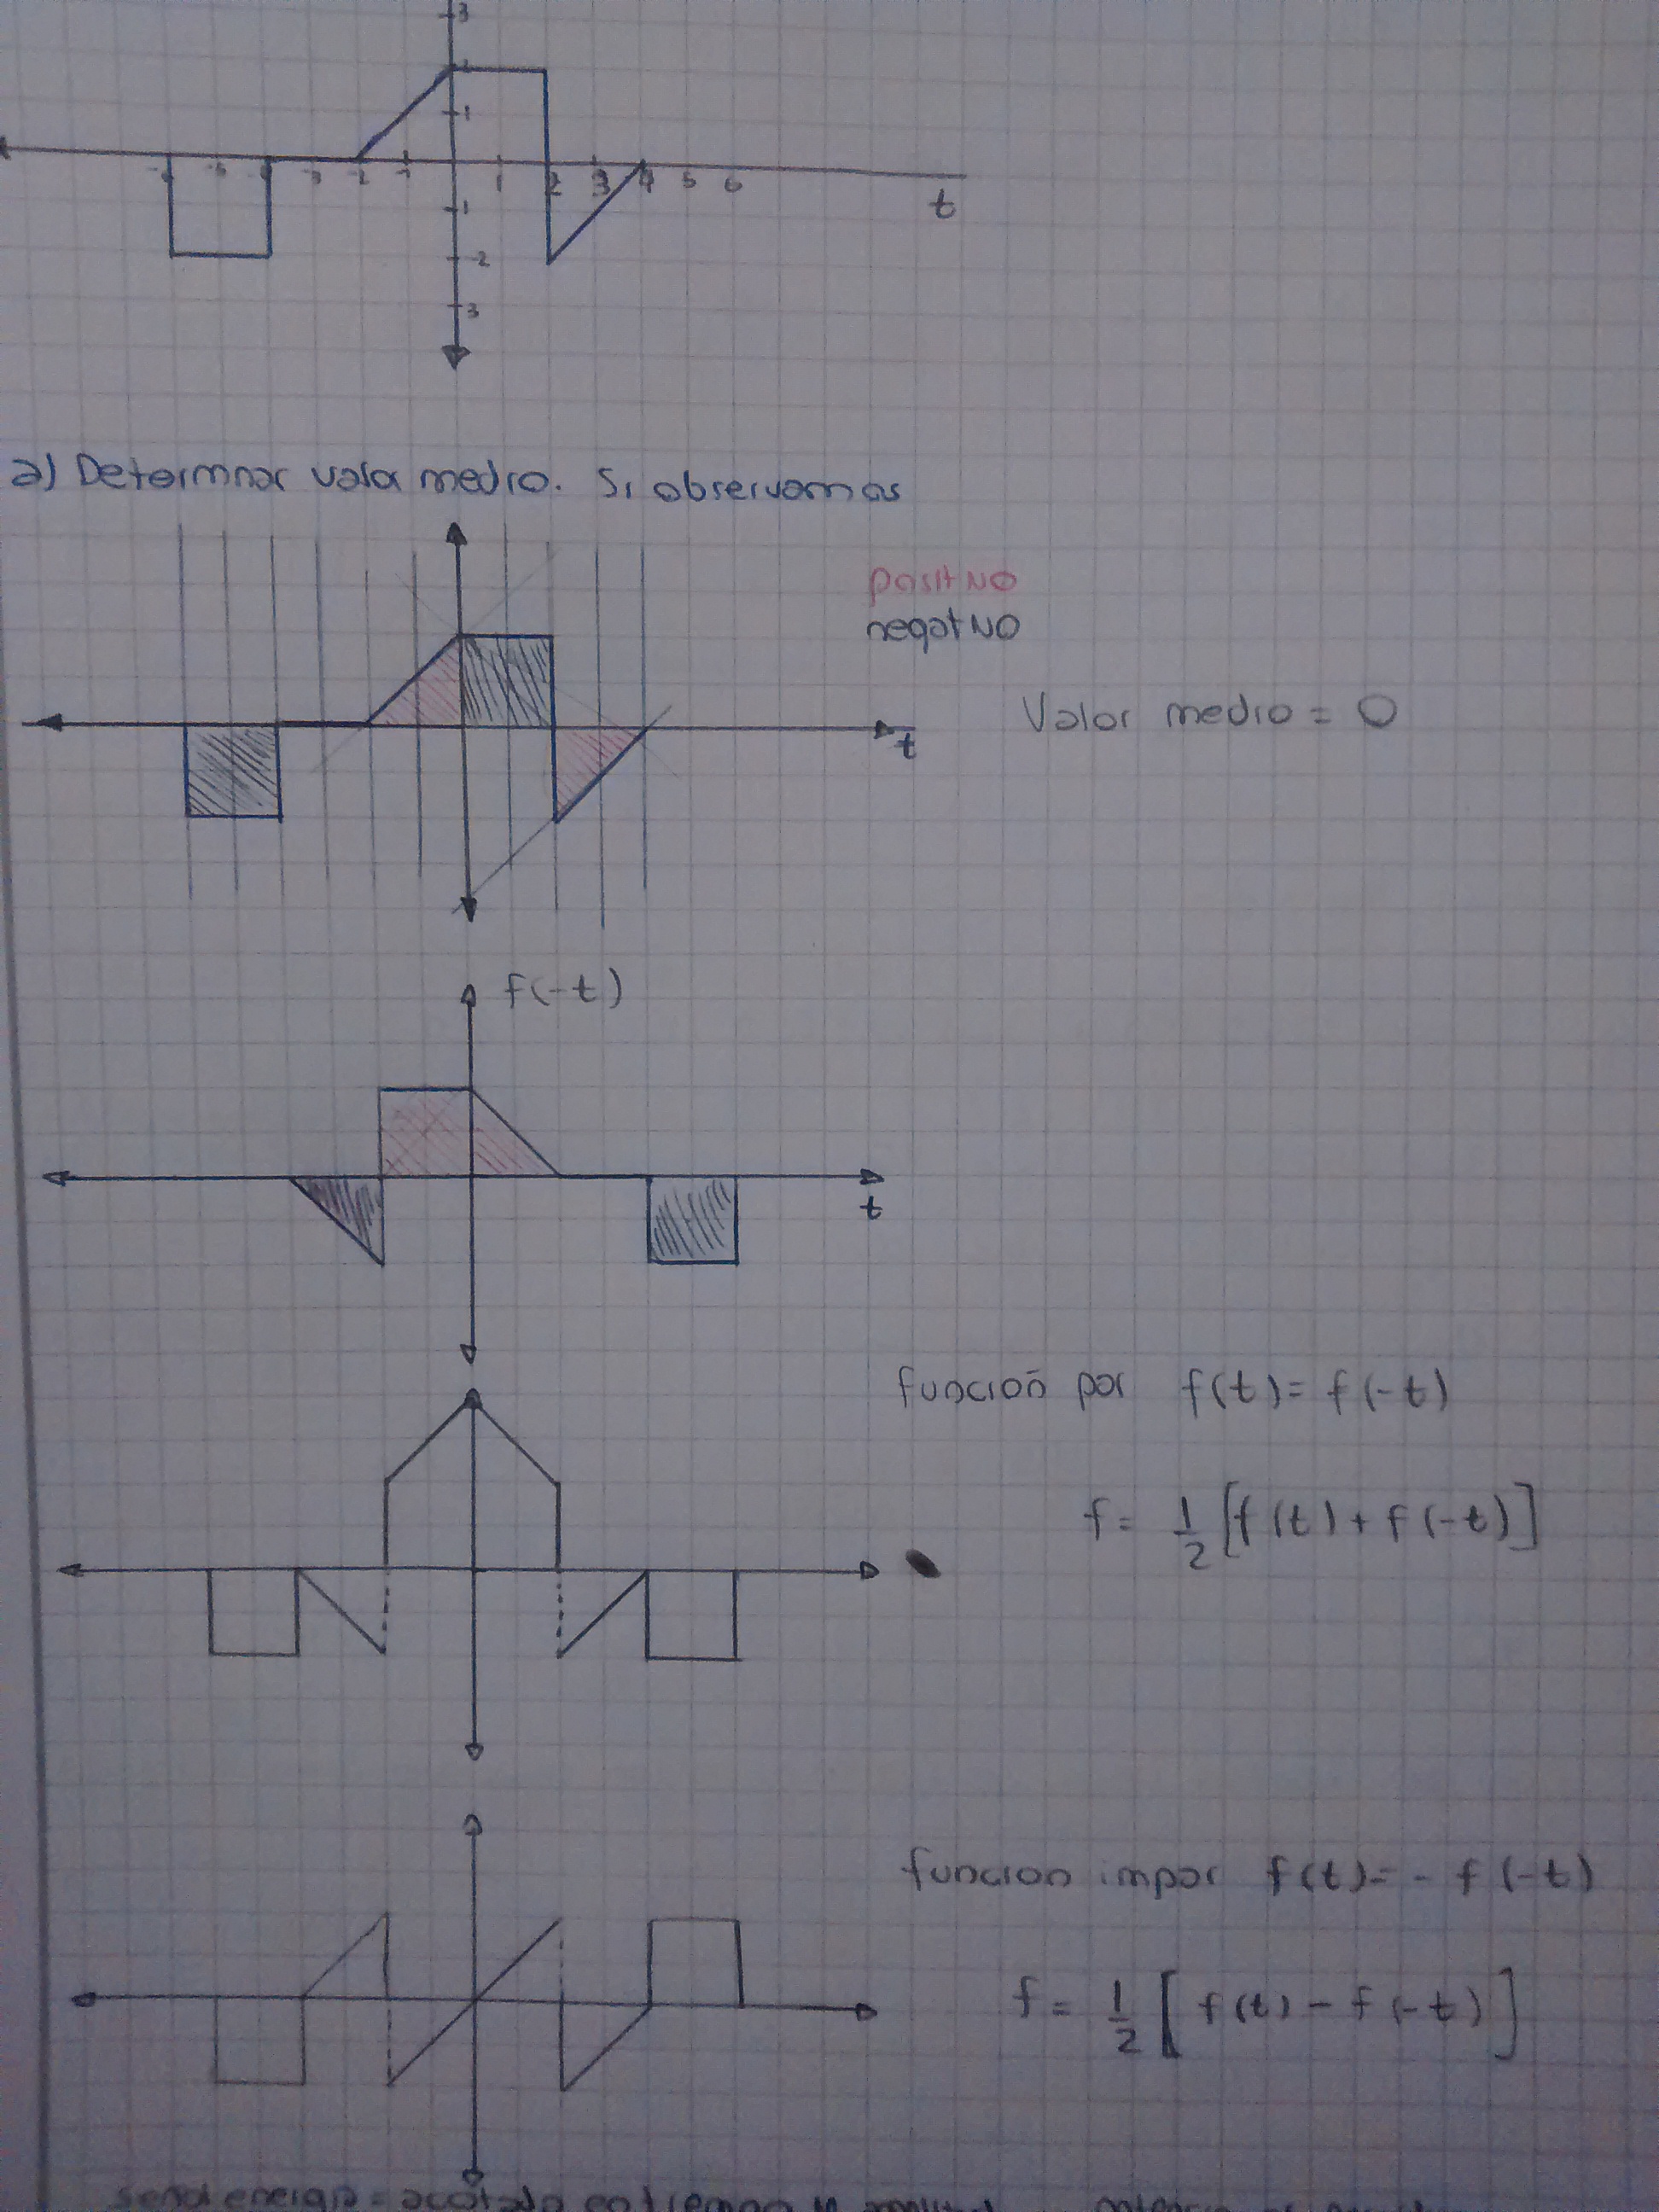 3
1
-2 -1 1 2 3 4 5 6
t
1
-2
3
a) Determnar valor medio. Si observamos
positivo
negativo
Valor medio = 0
t
f(-t)
t
función par f(t)= f(-t)
f= 1/2 [f(t)+ f(-t)]
funcion impar f(t)= - f(-t)
f= 1/2 [f(t) - f(-t)]
señal energia = acotada en tiempo